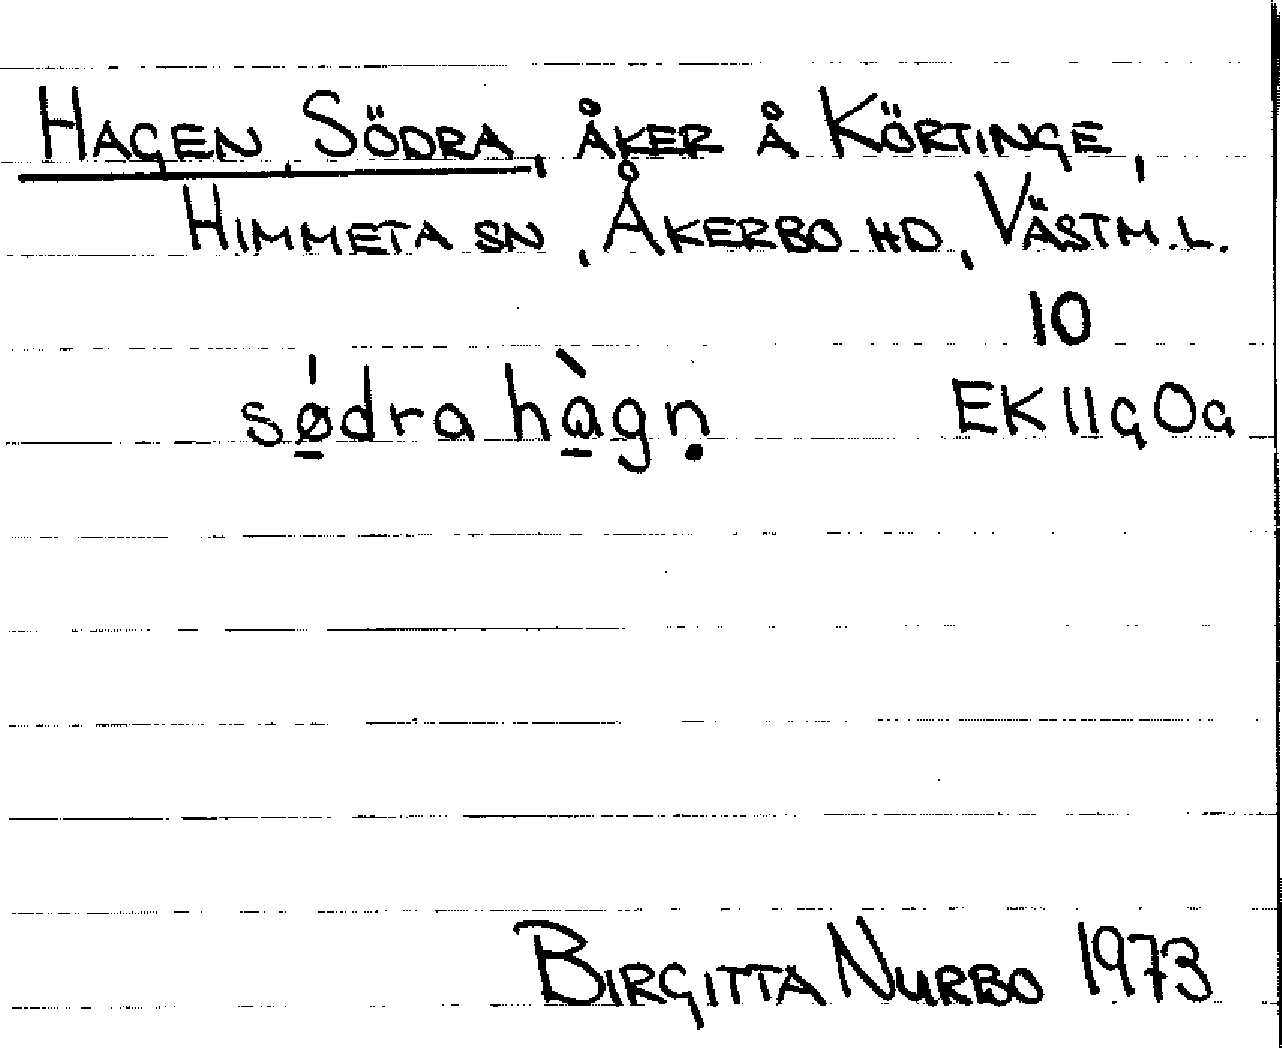 HAGEN, SÖDRA, ÅKER Å KÖRTINGE,
HIMMETA SN, ÅKERBO HD, VÄSTM.L.
10
sǿ̱dra hà̱gṇ EK 11g 0a
BIRGITTA NURBO 1973